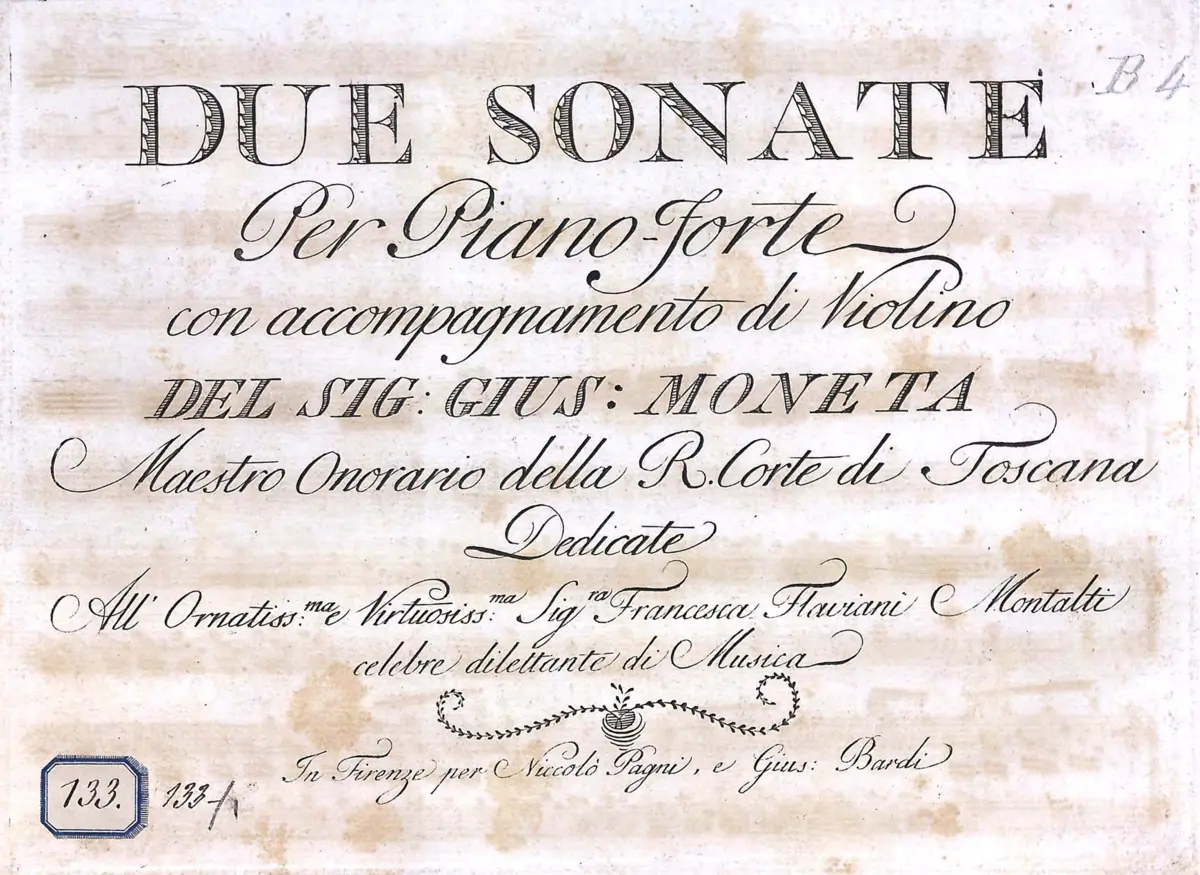 B 4
DUE SONATE
Per Piano-forte
con accompagnamento di Violino
DEL SIG: GIUS: MONETA
Maestro Onorario della R. Corte di Toscana
Dedicate
All' Ornatiss:ma e Virtuosiss:ma Sigra Francesca Flaviani Montalti
celebre dilettante di Musica
In Firenze per Niccolò Pagni, e Gius: Bardi
133. 133